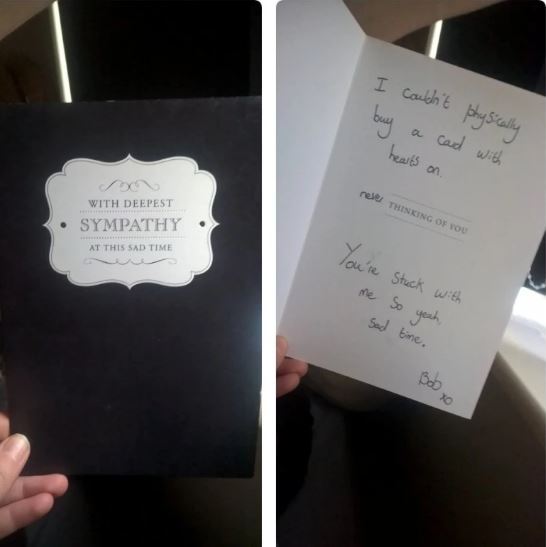 WITH DEEPEST
SYMPATHY
AT THIS SAD TIME
I couldn't physically
buy a card with
hearts on.
never THINKING OF YOU
You're stuck with
me so yeah,
sad time.
Bob
xo